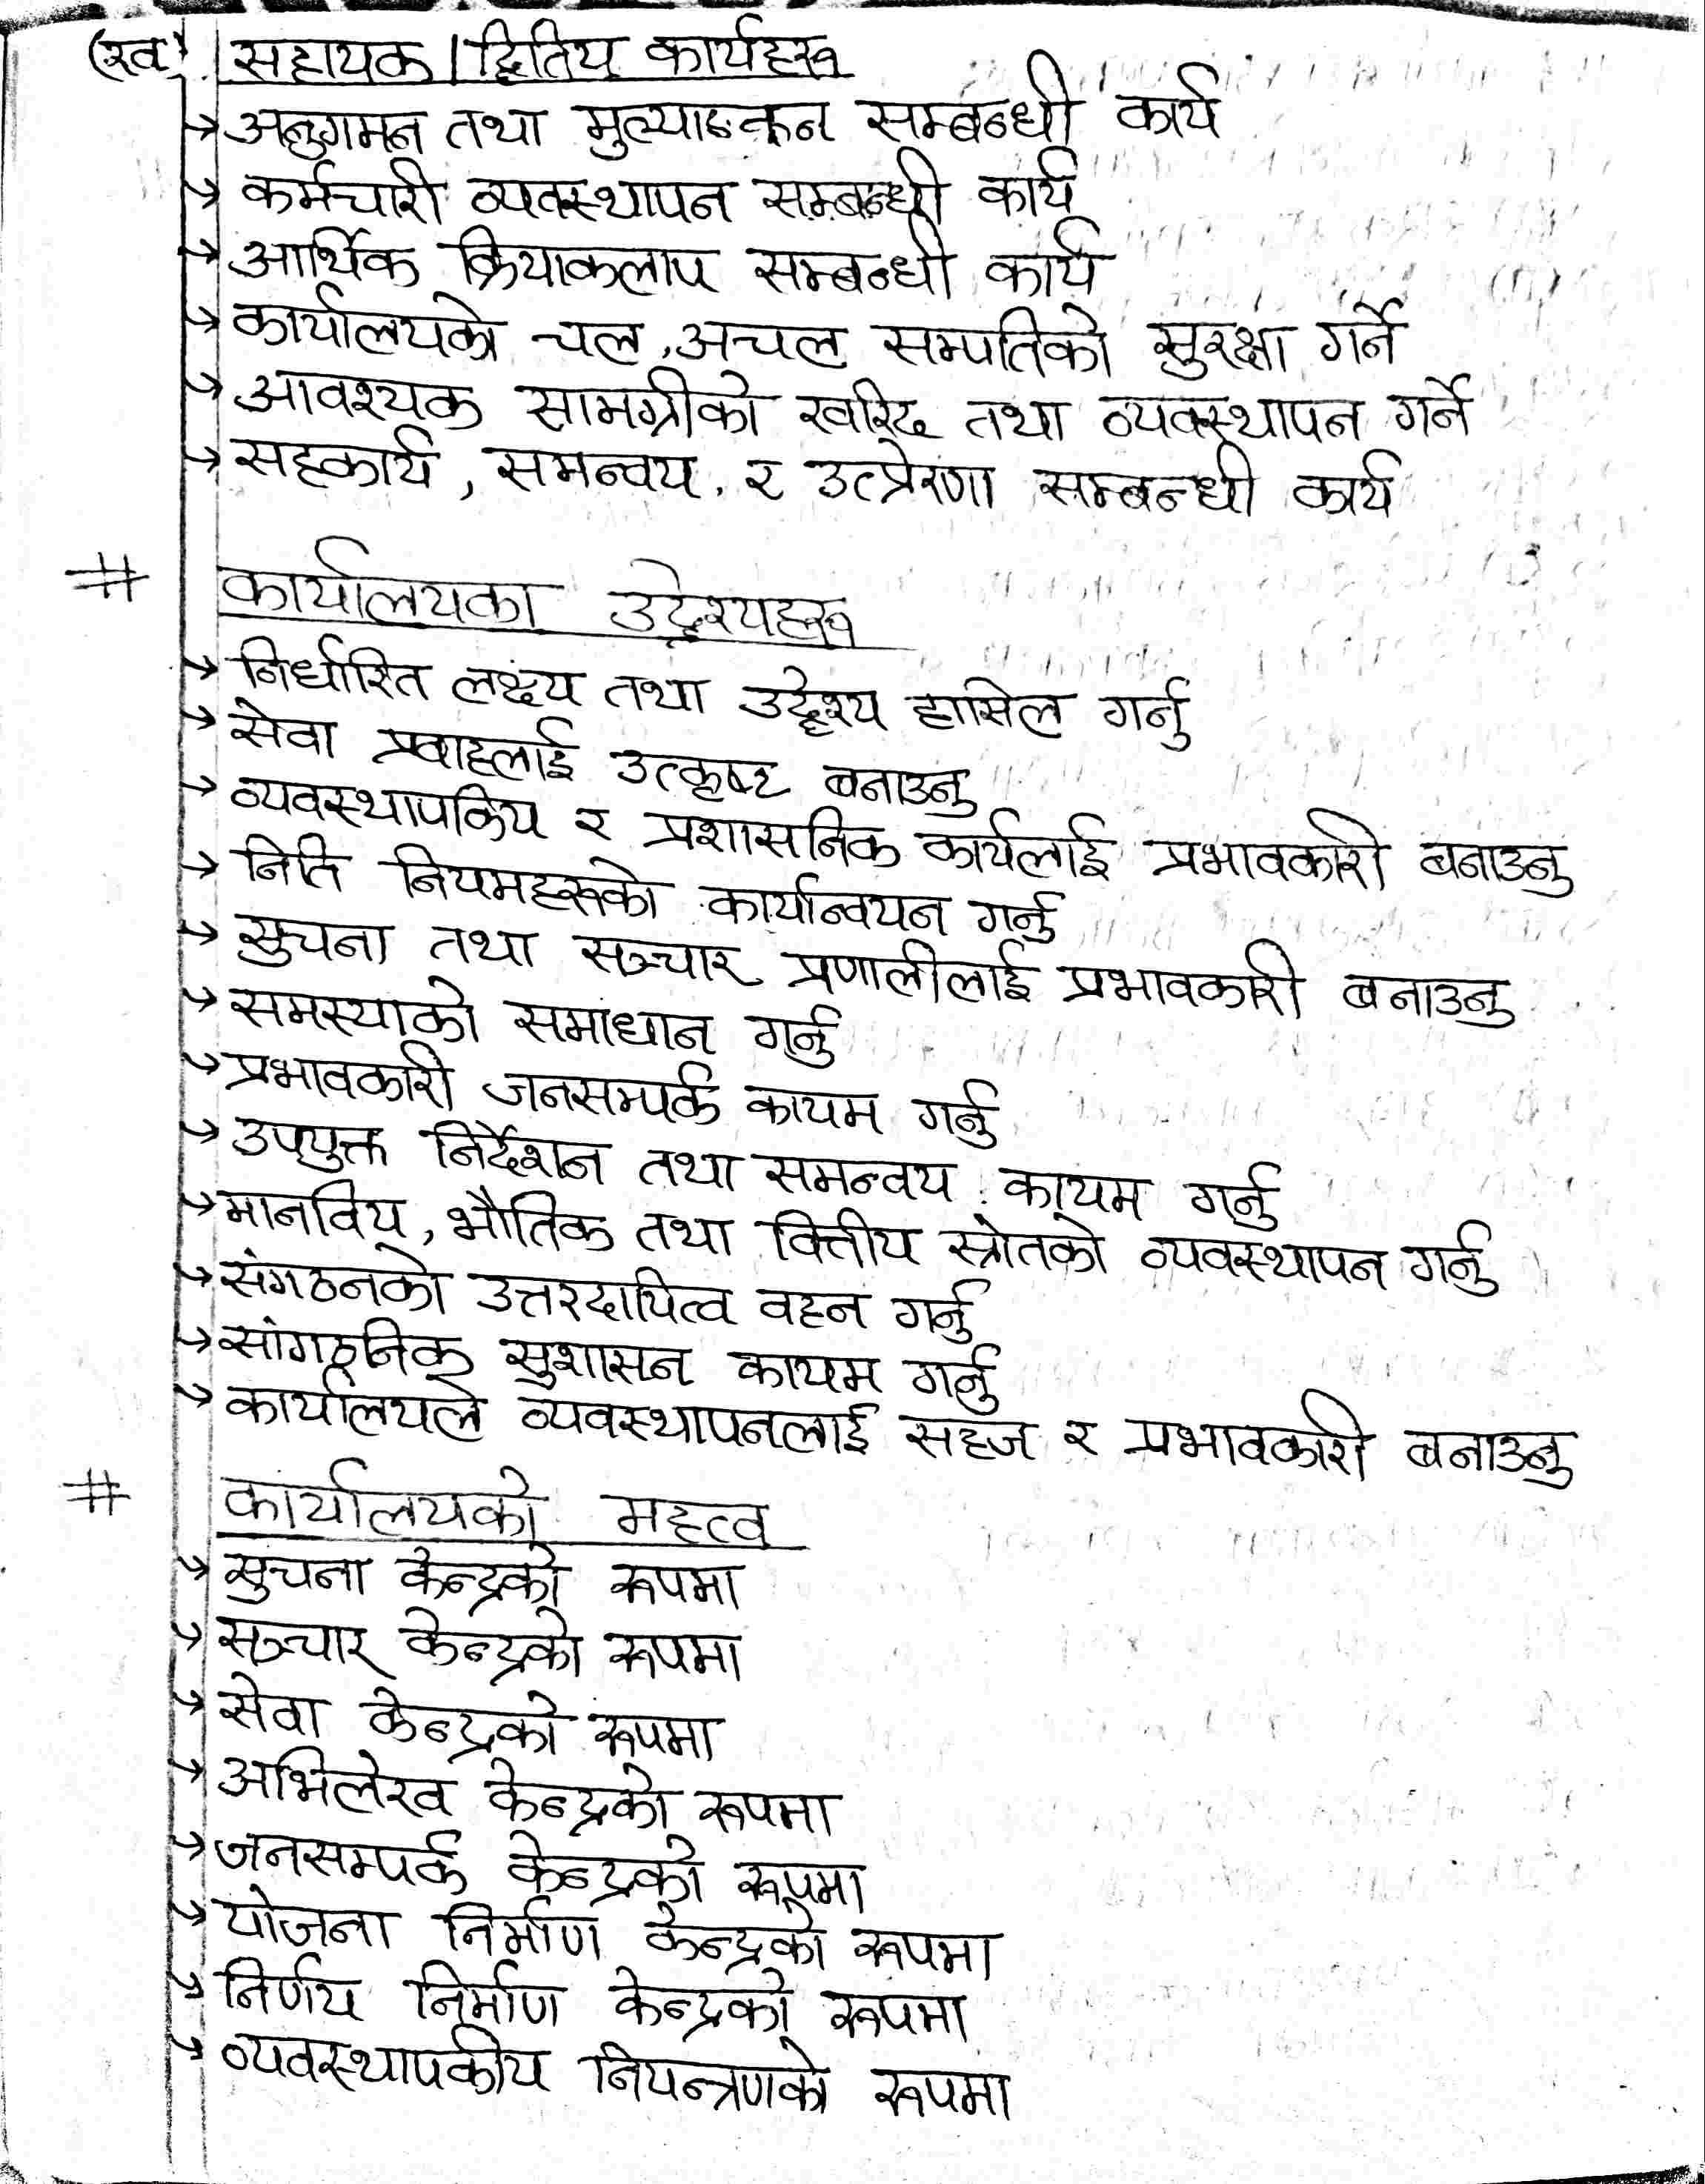 (ख) सहायक । द्वितिय कार्यहरू
→ अनुगमन तथा मुल्याङ्कन सम्बन्धी कार्य
→ कर्मचारी व्यवस्थापन सम्बन्धी कार्य
→ आर्थिक क्रियाकलाप सम्बन्धी कार्य
→ कार्यालयको चल, अचल सम्पतिको सुरक्षा गर्ने
→ आवश्यक सामग्रीको खरिद तथा व्यवस्थापन गर्ने
→ सहकार्य, समन्वय, र उत्प्रेरणा सम्बन्धी कार्य
# कार्यालयका उद्देश्यहरू
→ निर्धारित लक्ष्य तथा उद्देश्य हासिल गर्नु
→ सेवा प्रवाहलाई उत्कृष्ट बनाउनु
→ व्यवस्थापकिय र प्रशासनिक कार्यलाई प्रभावकारी बनाउनु
→ निति नियमहरूको कार्यान्वयन गर्नु
→ सुचना तथा सञ्चार प्रणालीलाई प्रभावकारी बनाउनु
→ समस्याको समाधान गर्नु
→ प्रभावकारी जनसम्पर्क कायम गर्नु
→ उपयुक्त निर्देशन तथा समन्वय कायम गर्नु
→ मानविय, भौतिक तथा वित्तीय स्रोतको व्यवस्थापन गर्नु
→ संगठनको उत्तरदायित्व वहन गर्नु
→ सांगठनिक सुशासन कायम गर्नु
→ कार्यालयले व्यवस्थापनलाई सहज र प्रभावकारी बनाउनु
# कार्यालयको महत्व
→ सुचना केन्द्रको रूपमा
→ सञ्चार केन्द्रको रूपमा
→ सेवा केन्द्रको रूपमा
→ अभिलेख केन्द्रको रूपमा
→ जनसम्पर्क केन्द्रको रूपमा
→ योजना निर्माण केन्द्रको रूपमा
→ निर्णय निर्माण केन्द्रको रूपमा
→ व्यवस्थापकीय नियन्त्रणको रूपमा